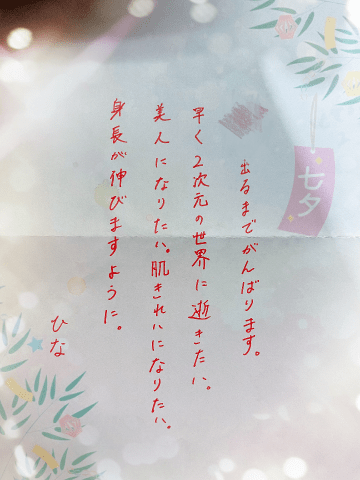 七夕
出るまでがんばります。
早く2次元の世界に逝きたい。
美人になりたい。肌きれいになりたい。
身長が伸びますように。
ひな